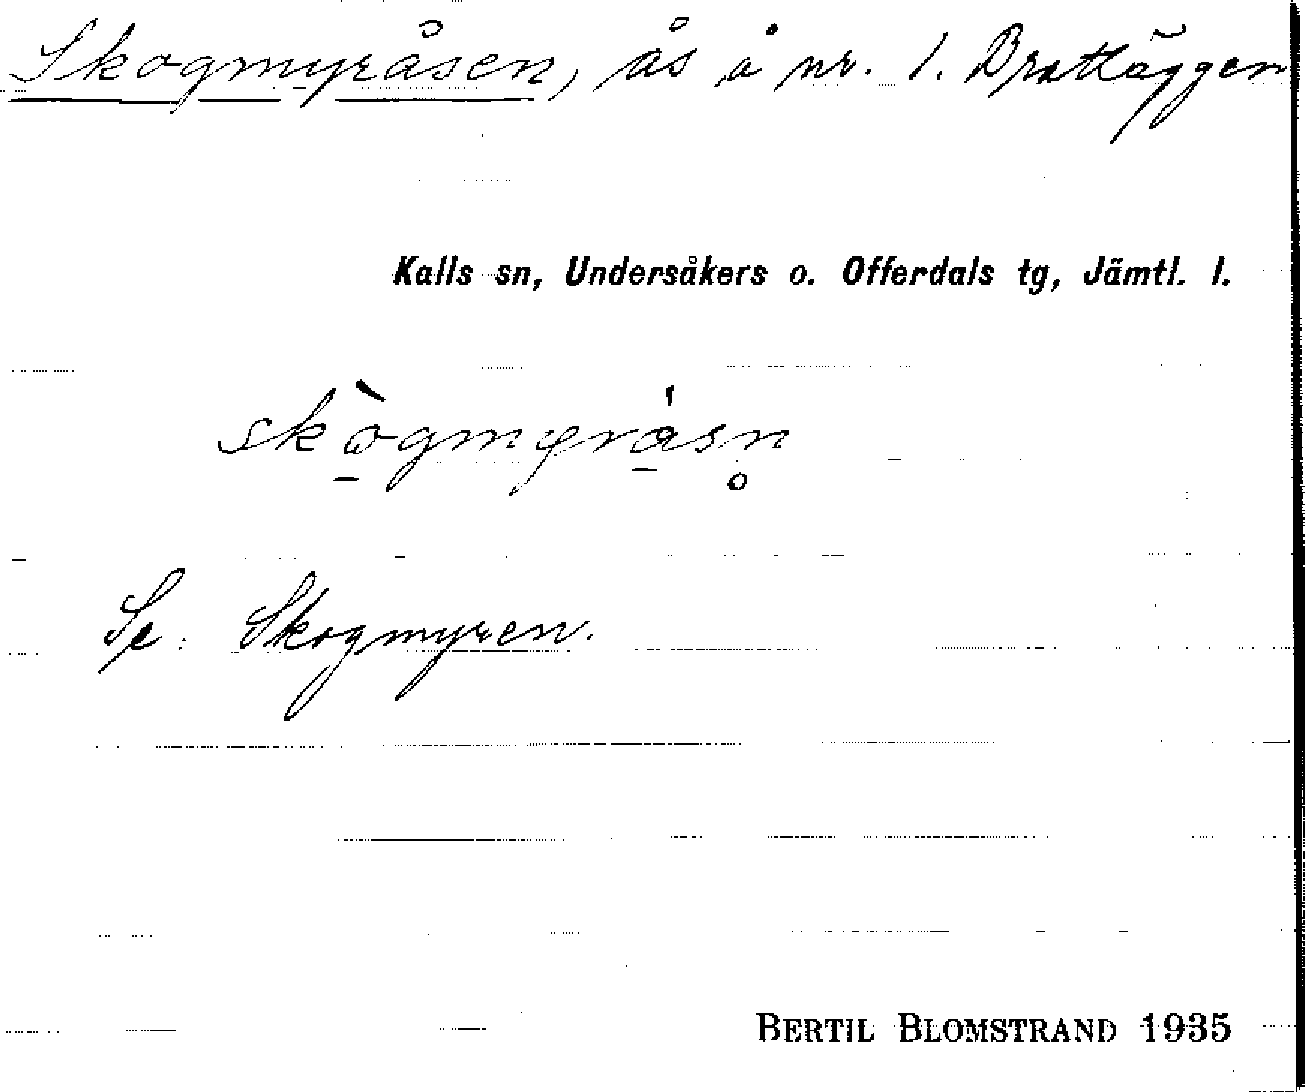 Skogmyråsen, ås å nr. 1. Brattäggen
Kalls sn, Undersåkers o. Offerdals tg, Jämtl. l.
skògmyråsn̥
Se: Skogmyren.
BERTIL BLOMSTRAND 1935